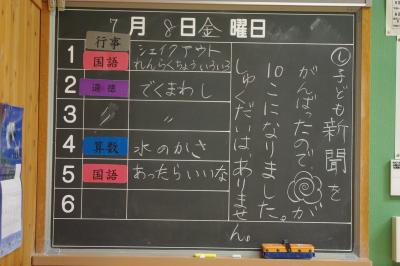 7月8日金曜日
行事
シェイクアウト
1
国語
れんらくちょういろいろ
2
道徳
でくまわし
3
〃
〃
4
算数
水のかさ
5
国語
あったらいいな
6
し子ども新聞を
がんばったので、が
10こになりました。
しゅくだいは、ありません。